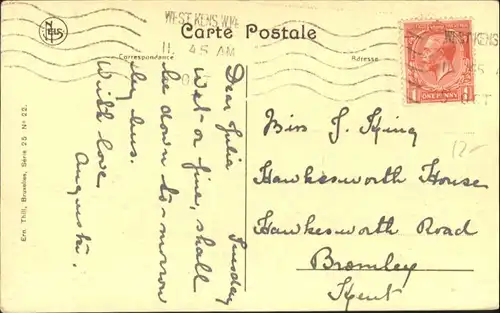 Carte Postale
Correspondance
Adresse
WEST KENS. W.14
11. 45 AM
WEST KENS
ONE PENNY
NELS
Tuesday
Dear Julia
Wet or fine, shall
be down to-morrow
by bus.
With love
Miss J.
Hawkesworth House
Hawkesworth Road
Bromley
Kent
12-
Ern. Thill, Bruxelles, Série 25 No 22.